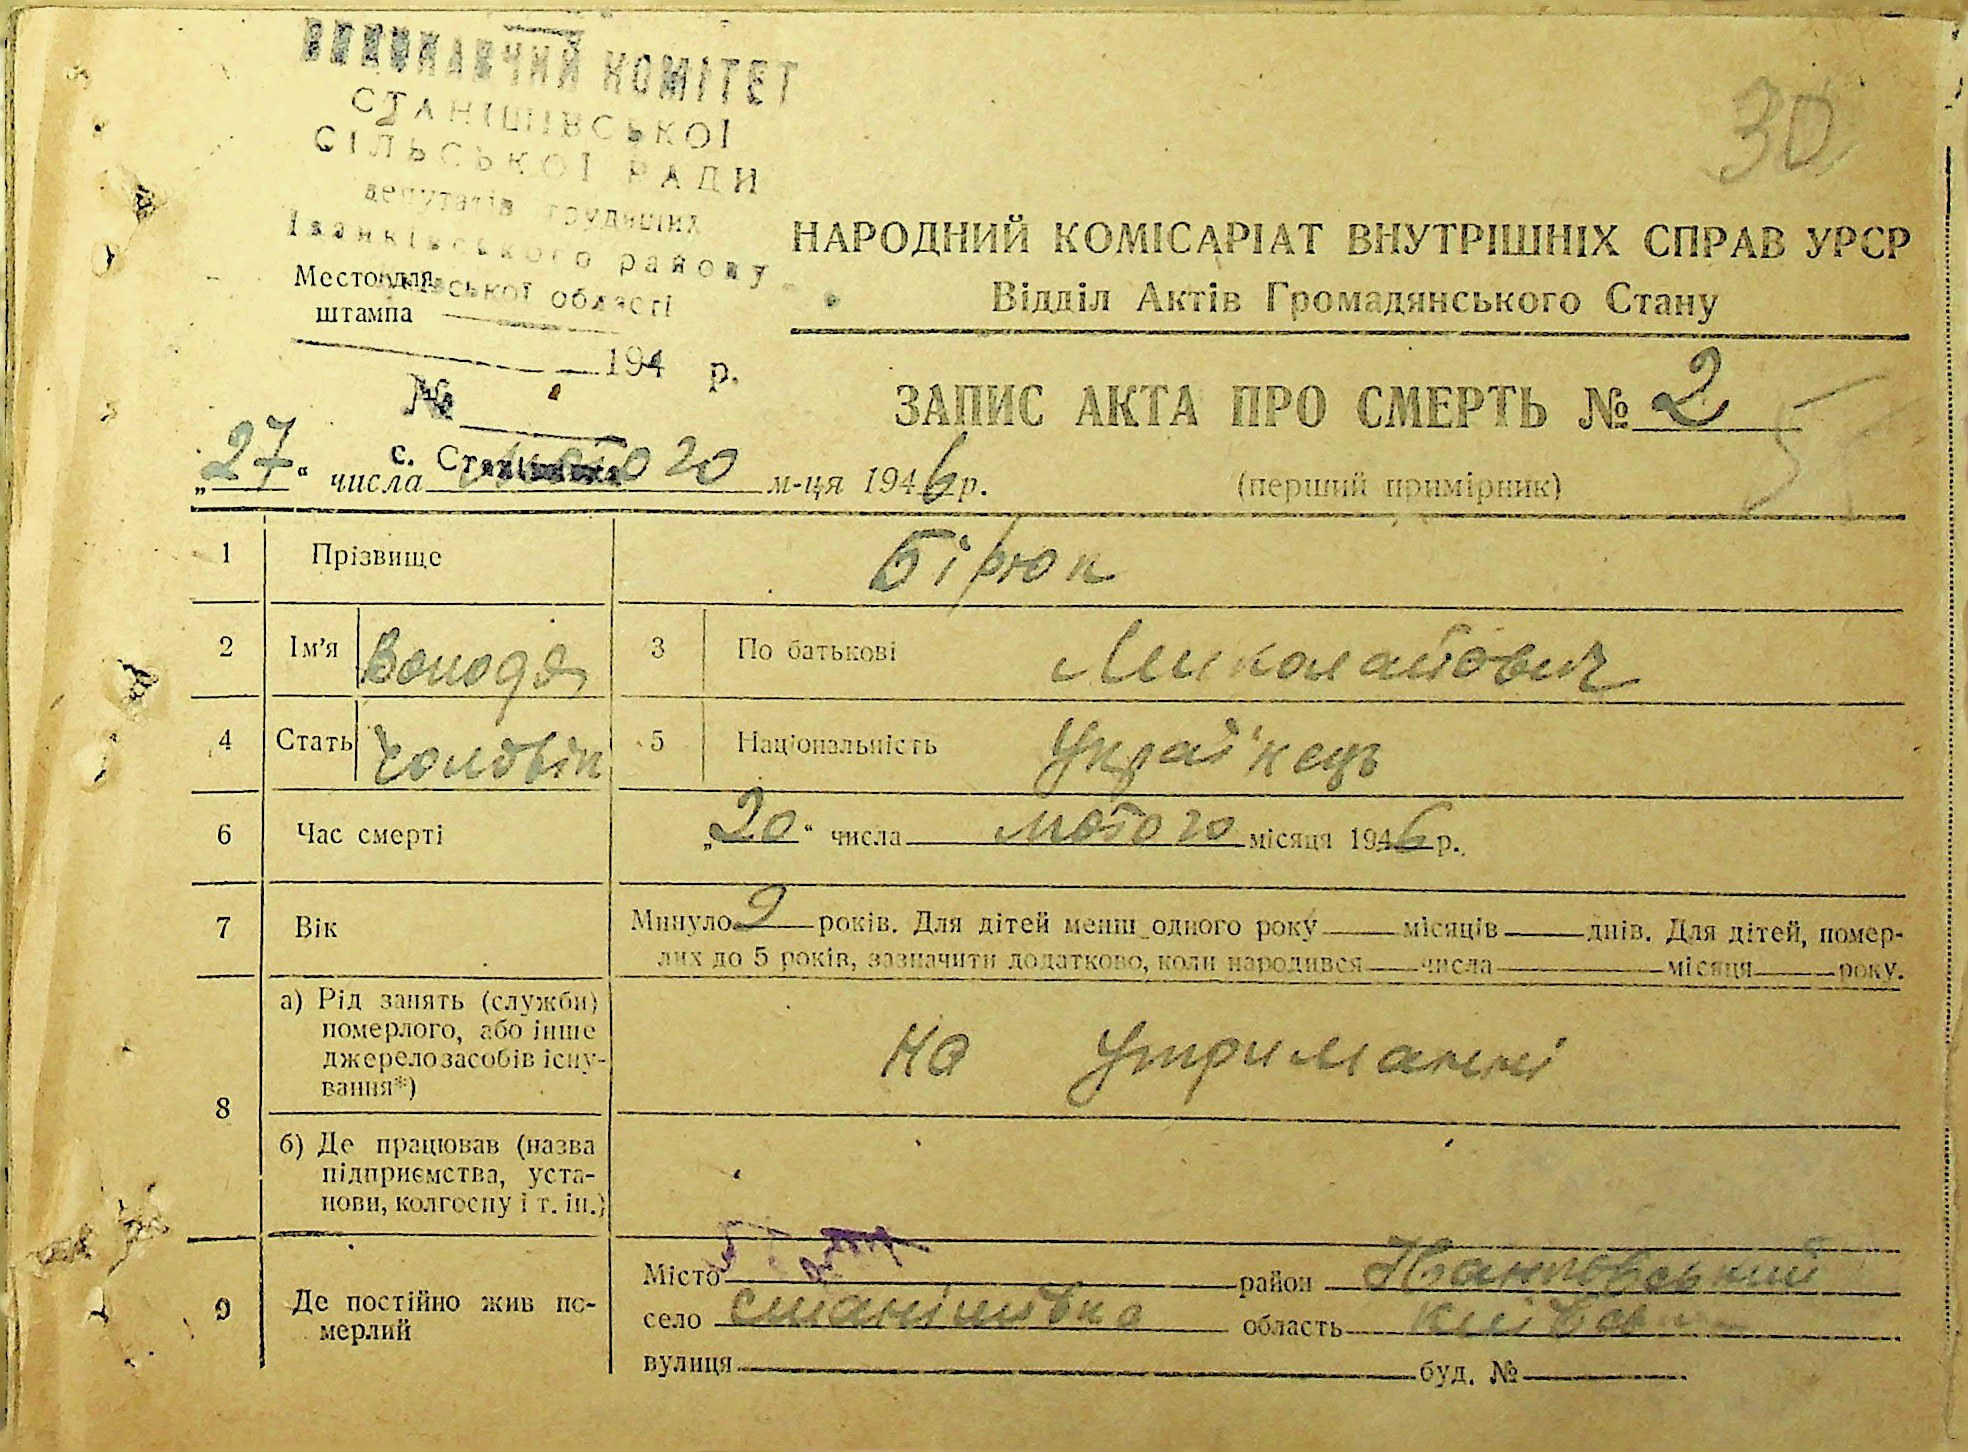 ВИКОНАВЧИЙ КОМІТЕТ
СТАНІШІВСЬКОЇ
СІЛЬСЬКОЇ РАДИ
депутатів трудящих
Іванківського району
Київської області
Место для
штампа
194 р.
№
с. Станішівка
30
НАРОДНИЙ КОМІСАРІАТ ВНУТРІШНІХ СПРАВ УРСР
Відділ Актів Громадянського Стану
ЗАПИС АКТА ПРО СМЕРТЬ № 2
5
„27“ числа лютого м-ця 1946 р.
(перший примірник)
1 Прізвище Бірюк
2 Ім'я Володя 3 По батькові Миколайович
4 Стать чоловік 5 Національність Українець
6 Час смерті „20“ числа лютого місяця 1946 р.
7 Вік Минуло 9 років. Для дітей менш одного року місяців днів. Для дітей, помер-
лих до 5 років, зазначити додатково, коли народився числа місяця року.
8 а) Рід занять (служби)
померлого, або інше
джерело засобів існу-
вання*)
на утриманні
б) Де працював (назва
підприємства, уста-
нови, колгоспу і т. ін.)
9 Де постійно жив по-
мерлий
Місто район Іванковський
село станішівка область київська
вулиця буд. №